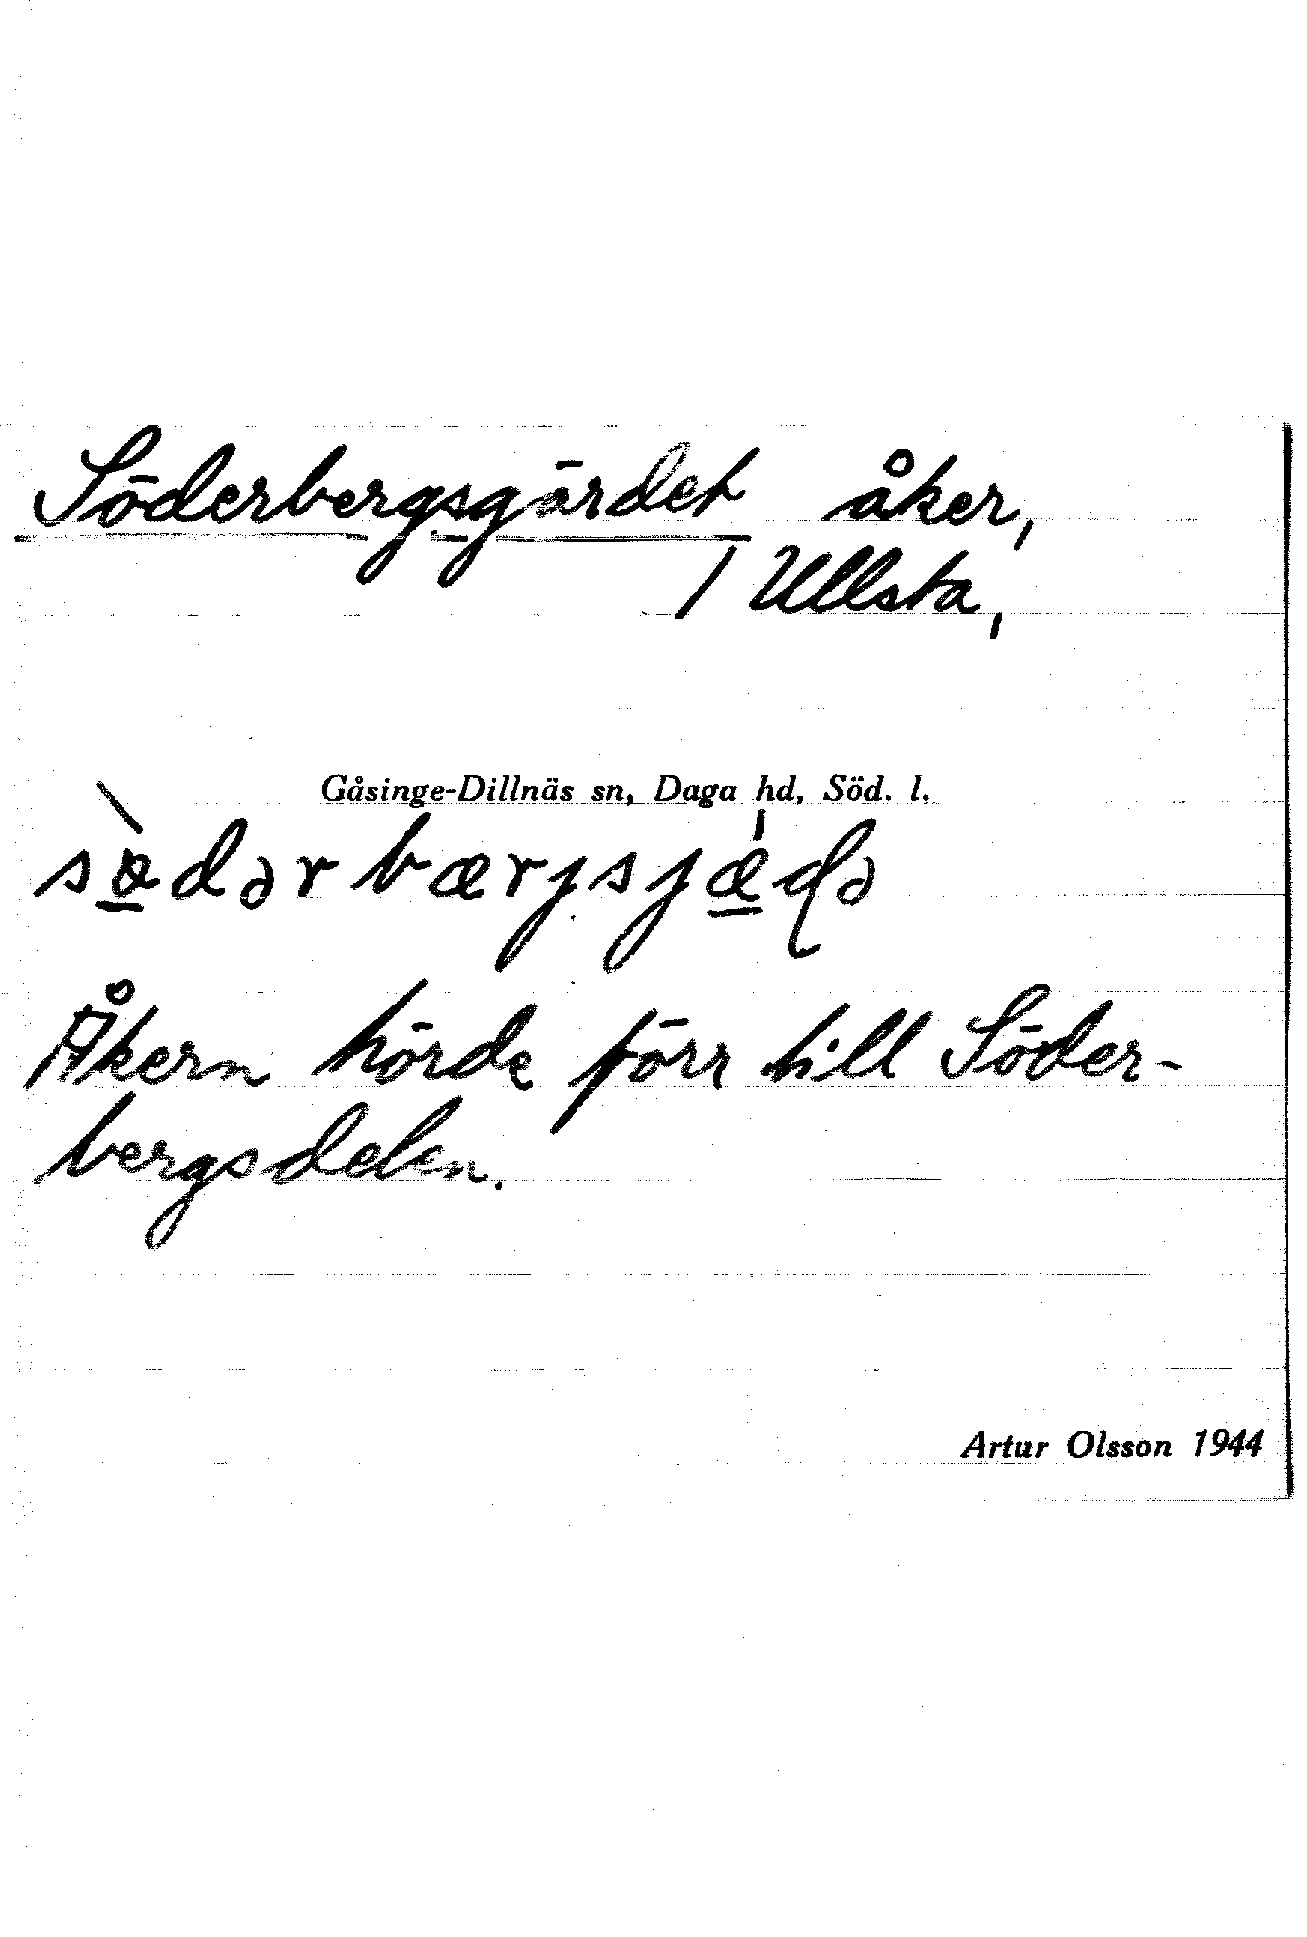 Söderbergsgärdet åker,
/ Ullsta,
Gåsinge-Dillnäs sn, Daga hd, Söd. l.
sö̀dərbærjsjæ̍ɖə
Åkern hörde förr till Söder-
bergsdelen.
Artur Olsson 1944